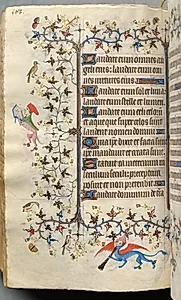 Laudate eum omnes an
geli eius: laudate eum om
nes virtutes eius
Laudate eum sol et luna:
laudate eum stelle et lumen.
Laudate eum celi celoru
et aque que super celos sunt
laudent nomen domini
Quia ipse dixit et facta sunt
ipse mandavit et creata sunt
Statuit ea in eternum et in
seculum seculi: preceptum
posuit et non preteribit
Laudate dominum de